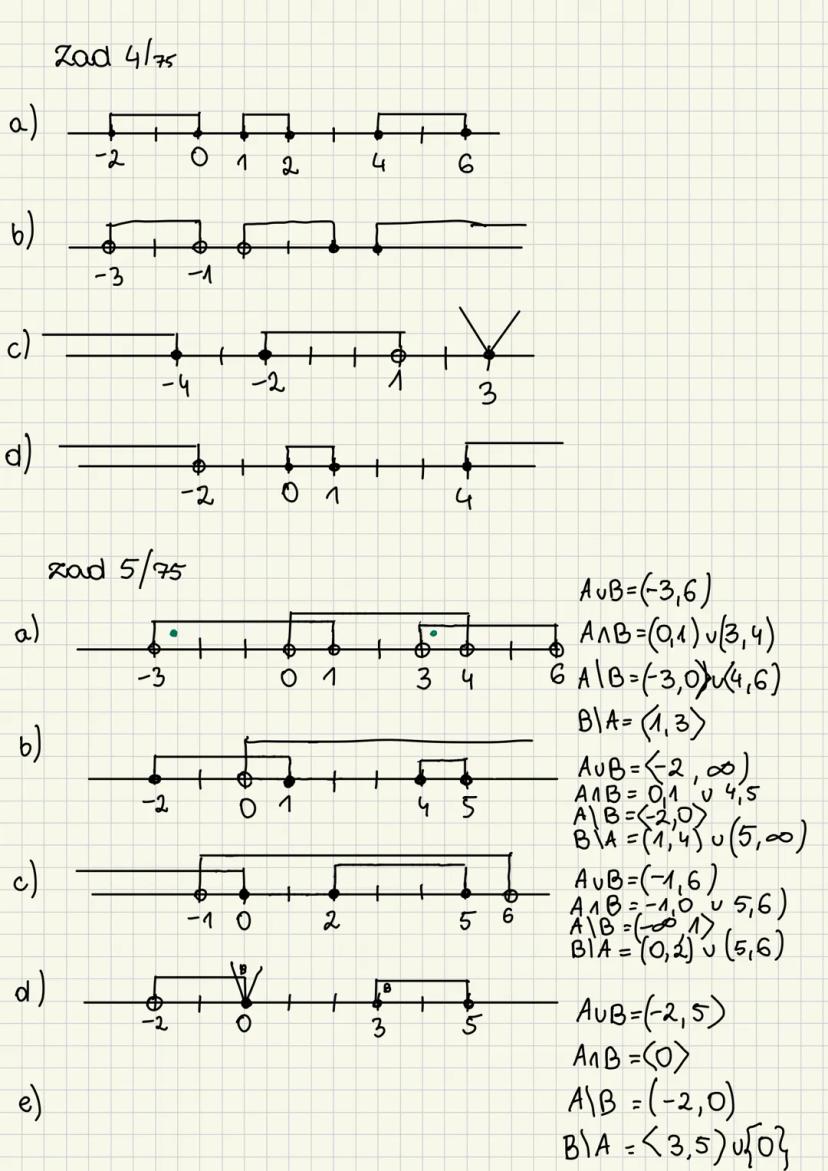 zad 4/75
a)
-2 0 1 2 4 6
b)
-3 -1
c)
-4 -2 1 3
d)
-2 0 1 4
zad 5/75
a)
-3 0 1 3 4 6
A∪B=(-3,6)
A∩B=(0,1)∪(3,4)
A\B=(-3,0)∪(4,6)
B\A=⟨1,3⟩
b)
-2 0 1 4 5
A∪B=⟨-2,∞)
A∩B= 0,1 ∪ 4,5
A\B=⟨-2,0⟩
B\A=(1,4)∪(5,∞)
c)
-1 0 2 5 6
A∪B=(-1,6)
A∩B=-1,0 ∪ 5,6)
A\B=(-∞,1⟩
B\A=(0,2)∪(5,6)
d)
B B
-2 0 3 5
A∪B=(-2,5)
A∩B=⟨0⟩
A\B=(-2,0)
B\A=⟨3,5)∪{0}
e)